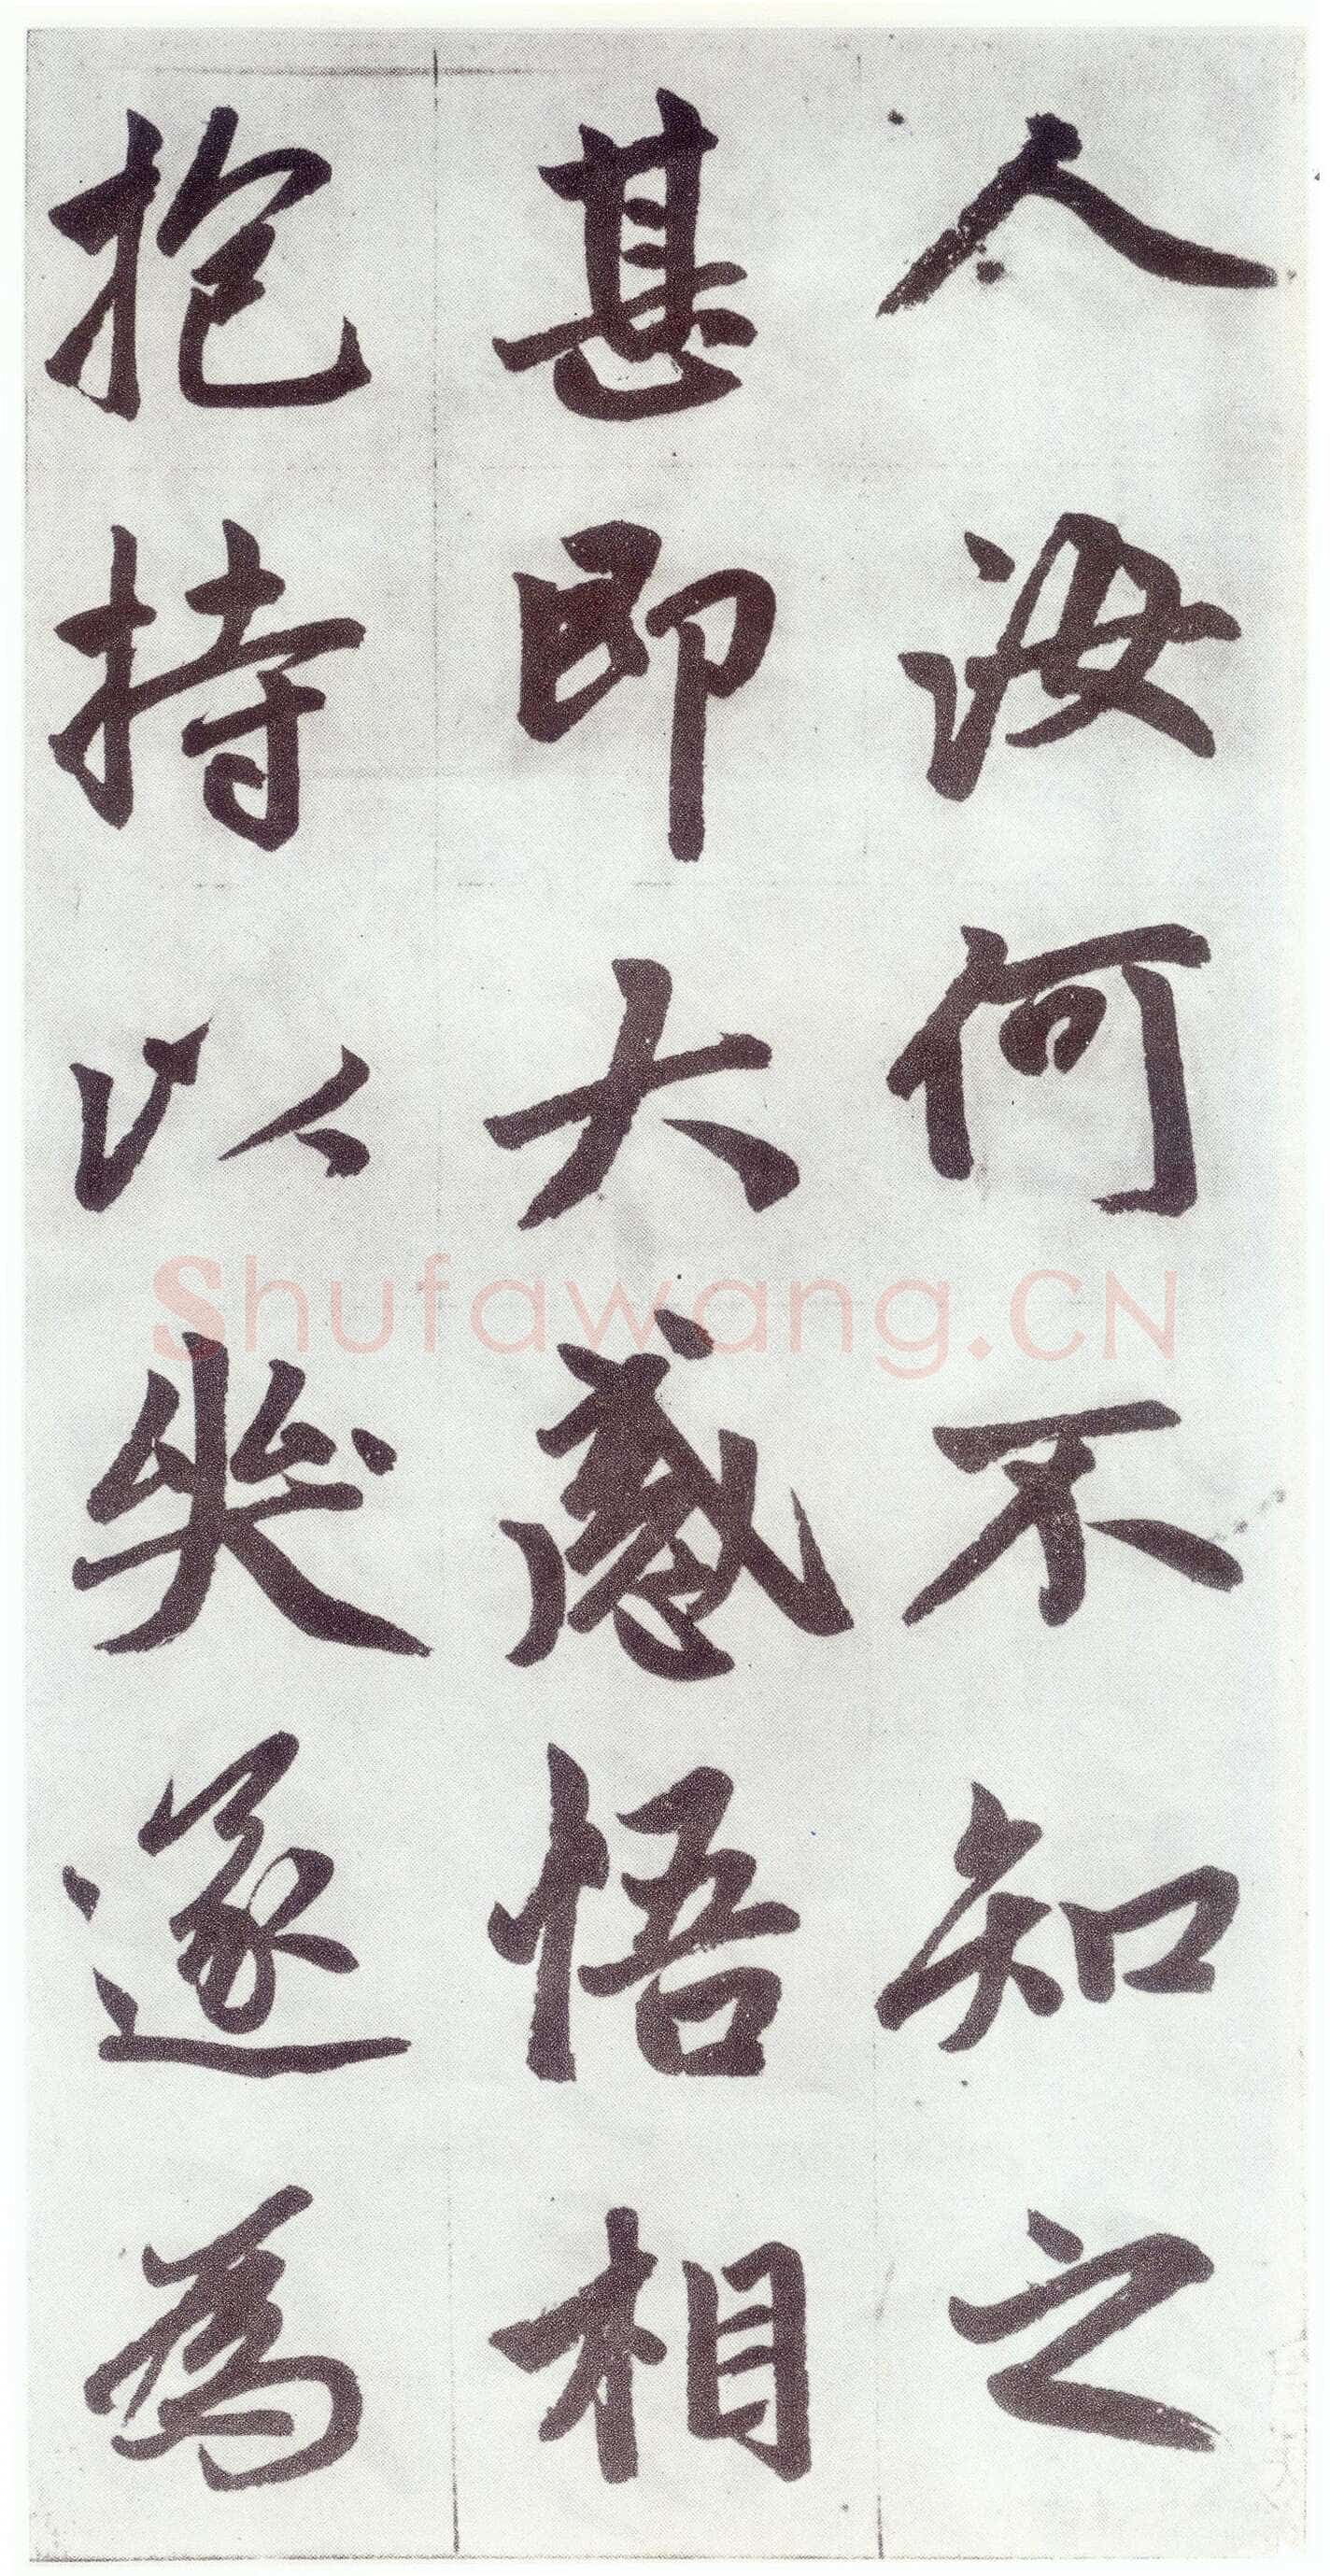 人汝何不知之
甚即大感悟相
抱持以哭遂为
Shufawang.CN